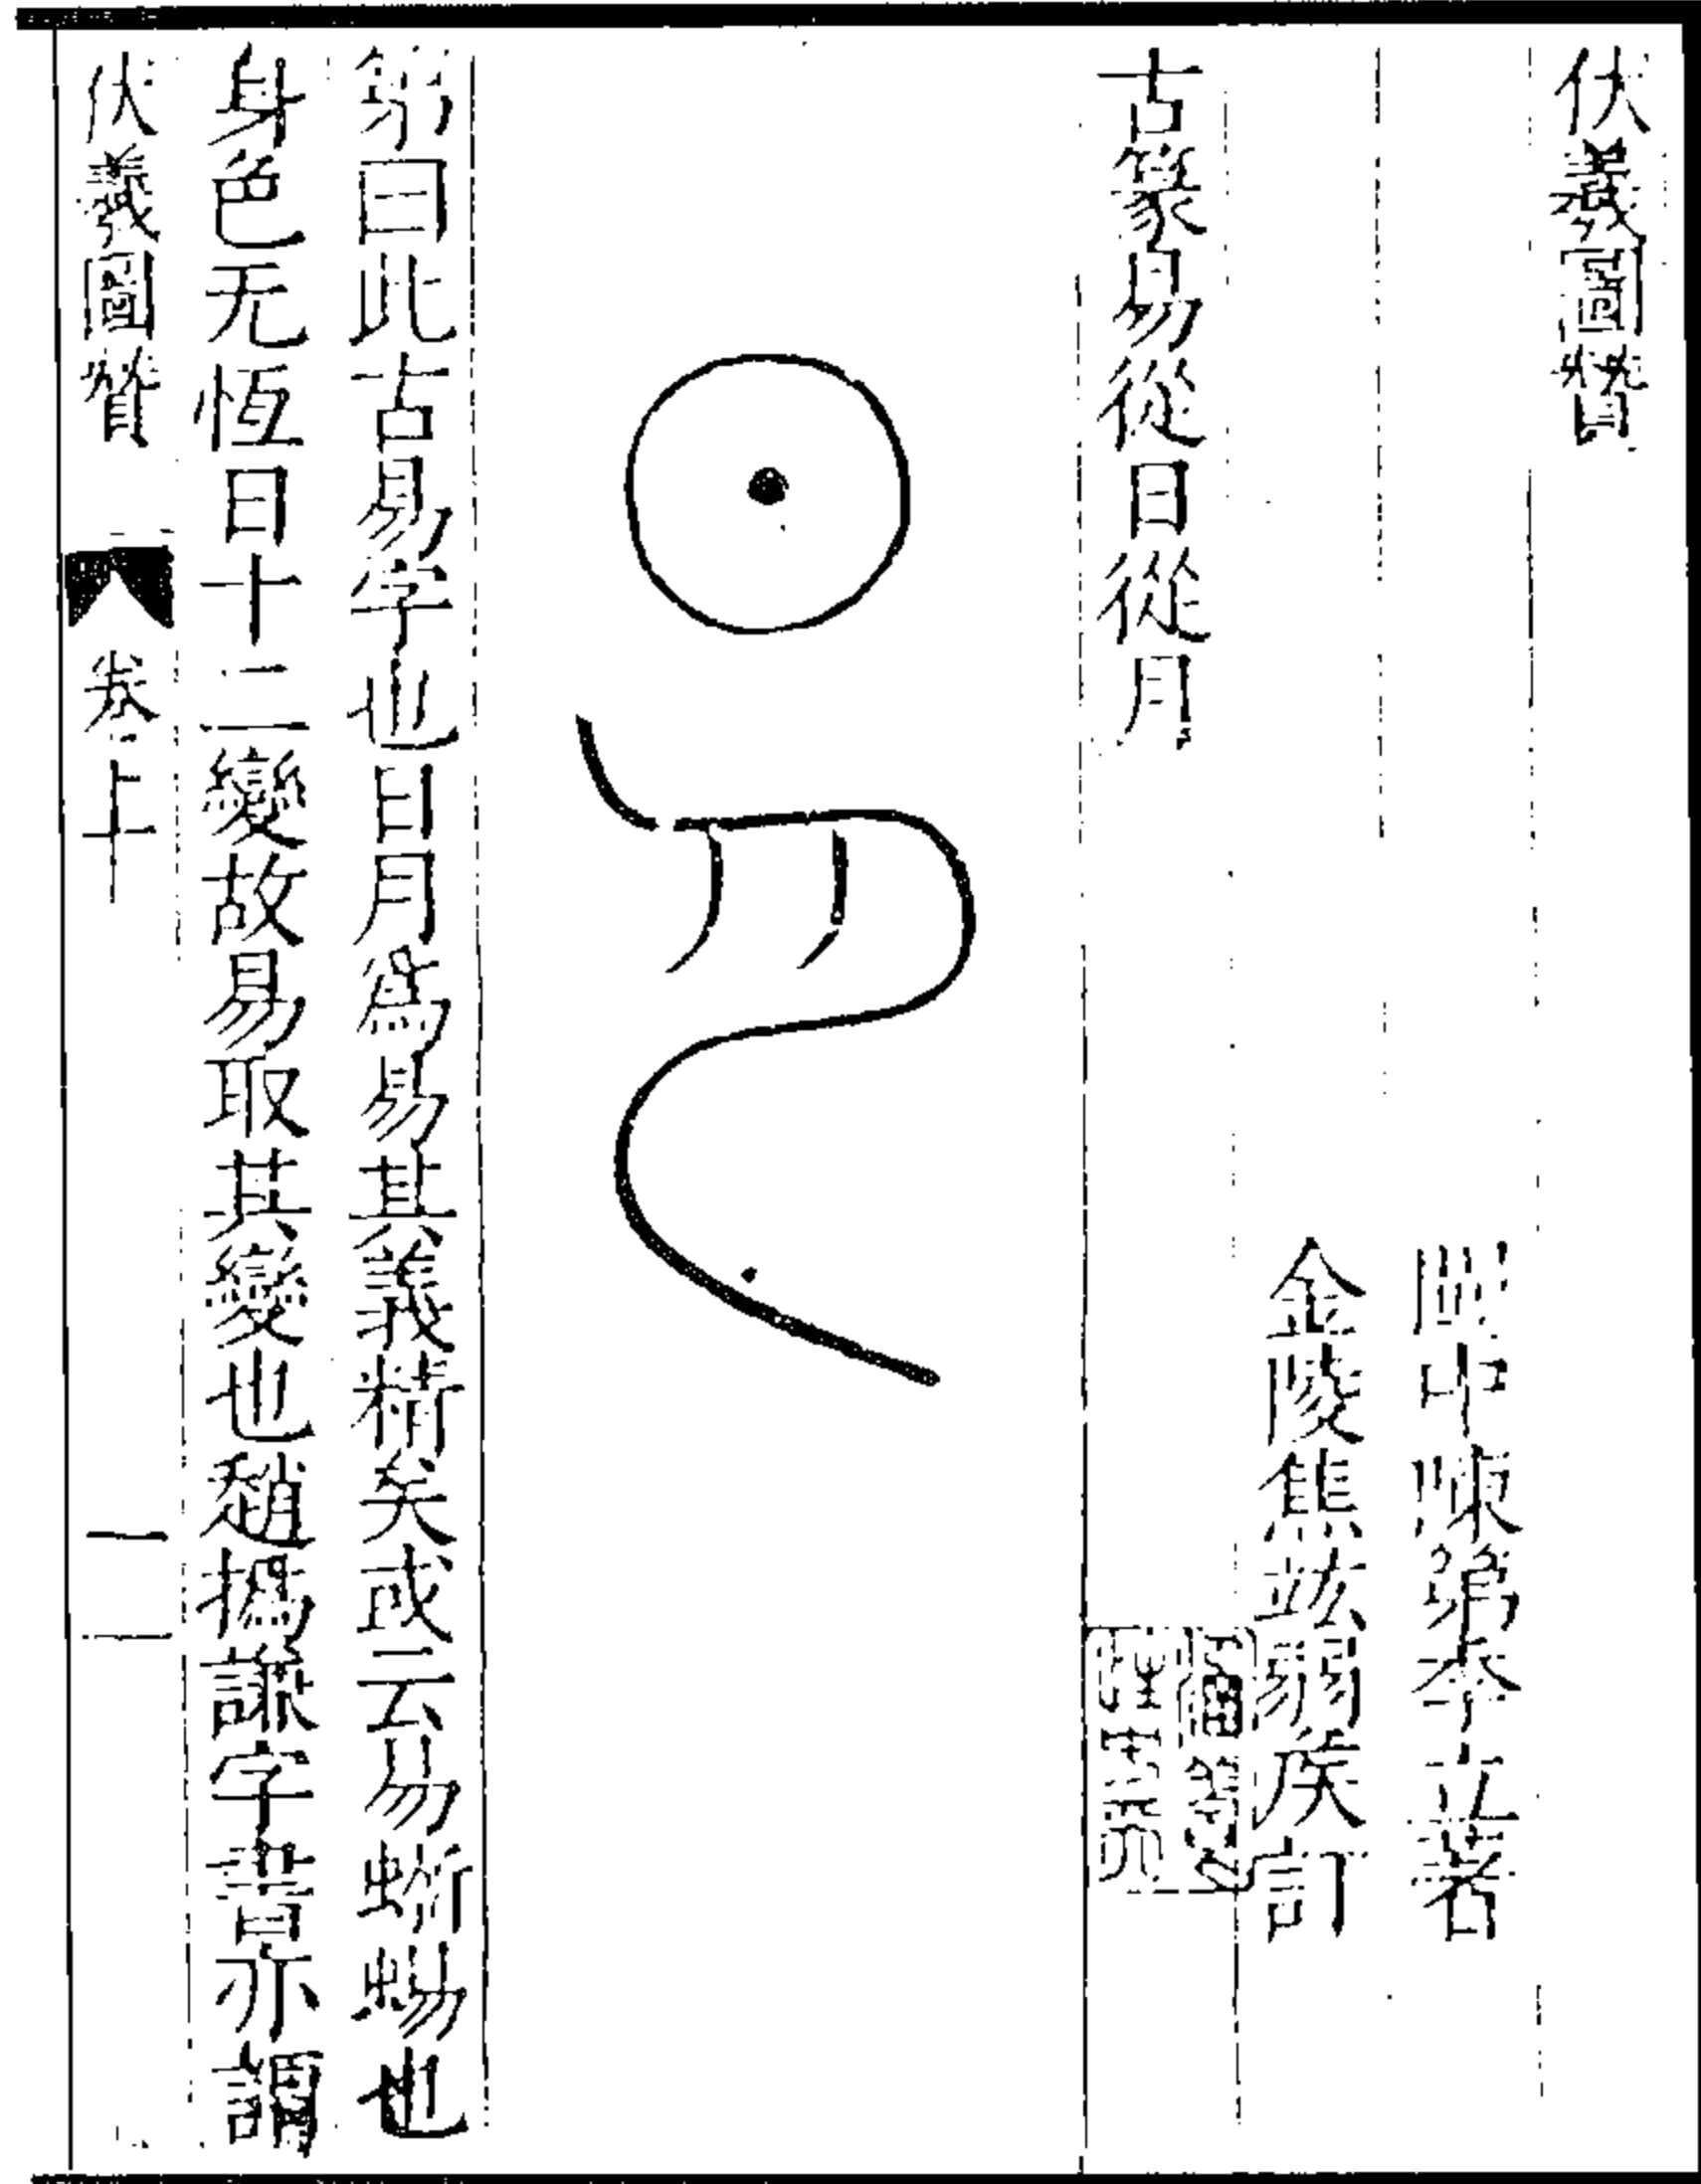 伏羲圖贊
閩中陳第季立著
金陵焦竑弱侯訂
古篆易從日從月
第曰此古易字也日月爲易其義精矣或云易蜥蜴也
身色无恆日十二變故易取其變也趙撝謙字書亦謂
伏羲圖贊 卷上 一